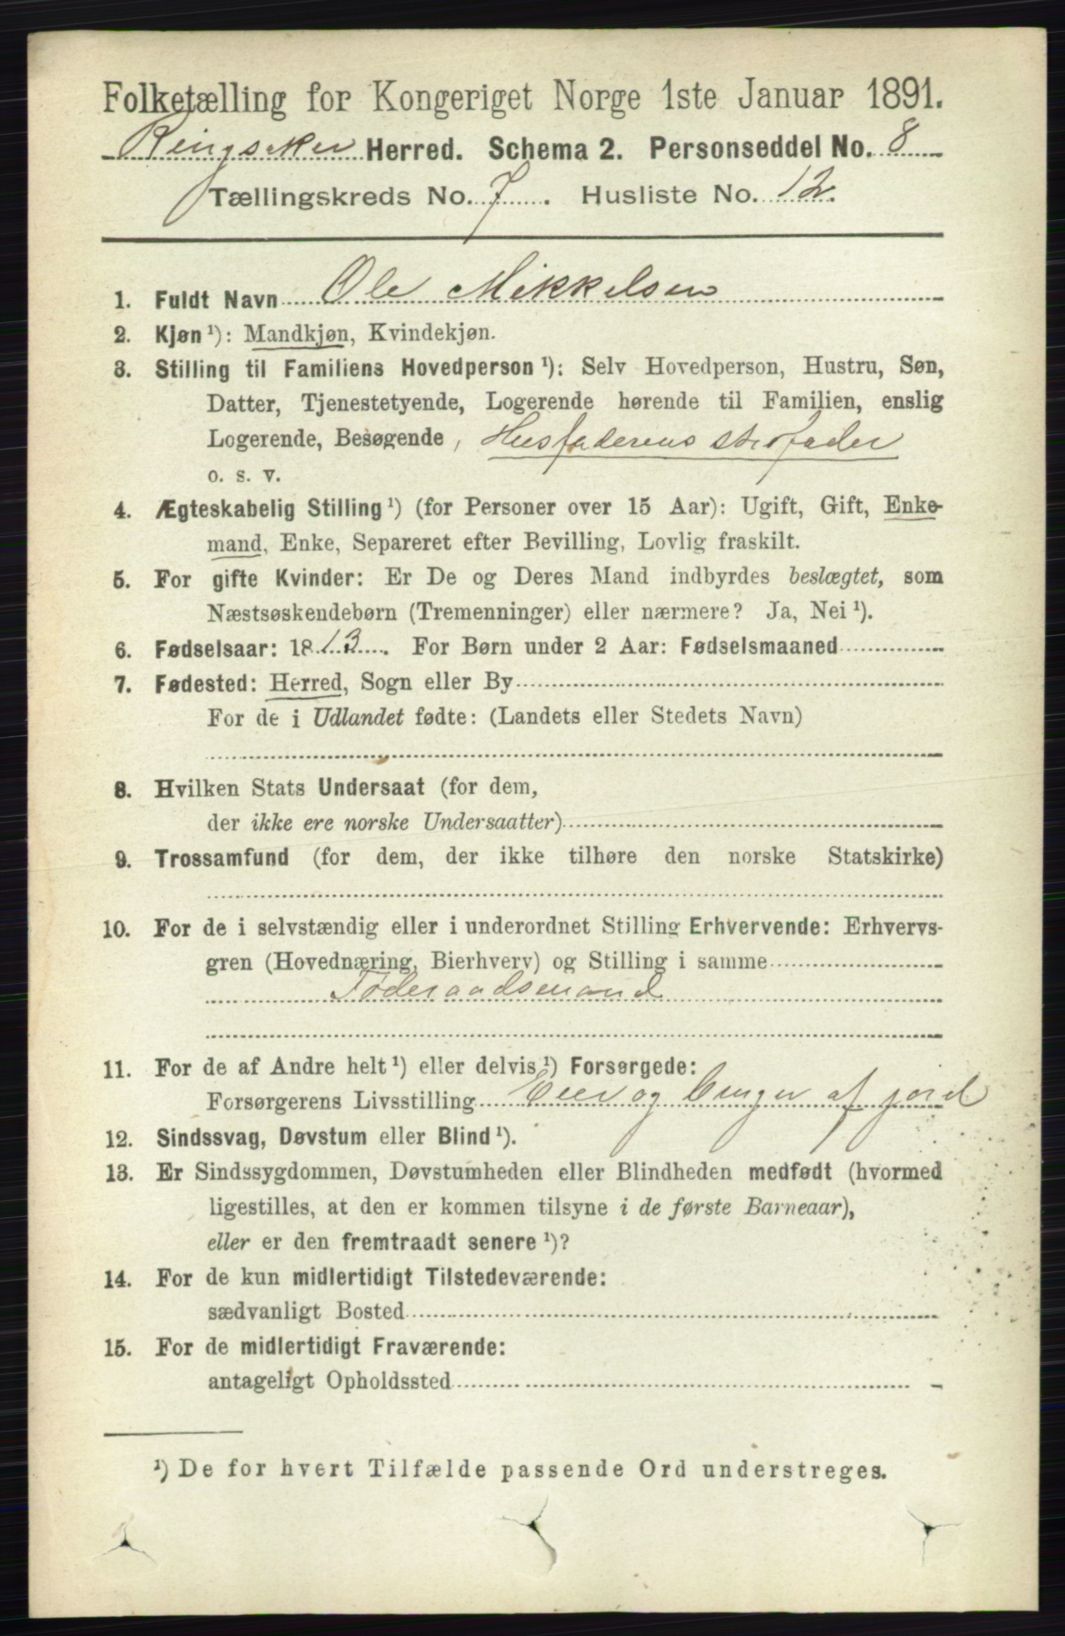 Folketælling for Kongeriget Norge 1ste Januar 1891.
Ringsaker Herred. Schema 2. Personseddel No. 8
Tællingskreds No. 7. Husliste No. 12.
1. Fuldt Navn Ole Mikkelsen
2. Kjøn ¹): Mandkjøn, Kvindekjøn.
3. Stilling til Familiens Hovedperson ¹): Selv Hovedperson, Hustru, Søn,
Datter, Tjenestetyende, Logerende hørende til Familien, enslig
Logerende, Besøgende, Husfaderens stedfader
o. s. v.
4. Ægteskabelig Stilling ¹) (for Personer over 15 Aar): Ugift, Gift, Enke-
mand, Enke, Separeret efter Bevilling, Lovlig fraskilt.
5. For gifte Kvinder: Er De og Deres Mand indbyrdes beslægtet, som
Næstsøskendebørn (Tremenninger) eller nærmere? Ja, Nei ¹).
6. Fødselsaar: 1813. For Børn under 2 Aar: Fødselsmaaned
7. Fødested: Herred, Sogn eller By
For de i Udlandet fødte: (Landets eller Stedets Navn)
8. Hvilken Stats Undersaat (for dem,
der ikke ere norske Undersaatter)
9. Trossamfund (for dem, der ikke tilhøre den norske Statskirke)
10. For de i selvstændig eller i underordnet Stilling Erhvervende: Erhvervs-
gren (Hovednæring, Bierhverv) og Stilling i samme
Føderaadsmand
11. For de af Andre helt ¹) eller delvis ¹) Forsørgede:
Forsørgerens Livsstilling Eier og bruger af jord
12. Sindssvag, Døvstum eller Blind ¹).
13. Er Sindssygdommen, Døvstumheden eller Blindheden medfødt (hvormed
ligestilles, at den er kommen tilsyne i de første Barneaar),
eller er den fremtraadt senere ¹)?
14. For de kun midlertidigt Tilstedeværende:
sædvanligt Bosted
15. For de midlertidigt Fraværende:
antageligt Opholdssted
¹) De for hvert Tilfælde passende Ord understreges.